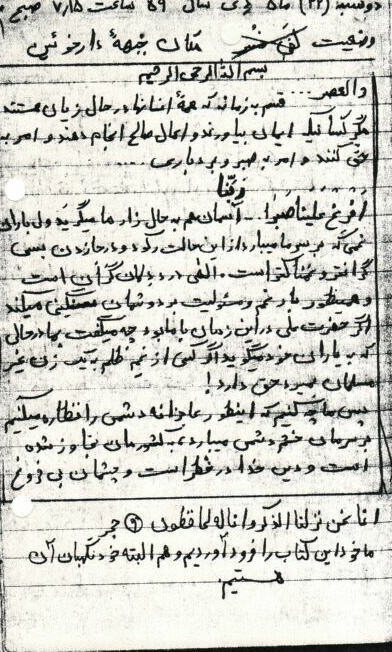 دوشنبه (۲۲) ماه دی سال ۵۹ ساعت ۷/۱۵ صبح
وضعیت مکان جبههٔ دارخوئین
بسم الله الرحمن الرحیم
والعصر... قسم به زمانه که همهٔ انسانها در حال زیان هستند
مگر کسانیکه ایمان بیاورند و اعمال صالح انجام دهند و امر به
حق کنند و امر به صبر و بردباری ....
ربنا
افرغ علینا صبرا... آسمان هم به حال زار ما میگرید ولی باران
نمی‌ که بر سر ما میبارد از این حالت رکود و درجا زدن بسی
گرانتر و است. الهی درد دلمان گران است
و همینطور بار غم و مسئولیت بر دوشمان سنگینی میکند
اگر حضرت علی در این زمان با ما بود چه میگفت بما در حالی
که به یاران خود میگوید اگر کسی از غم ظلم به یک زن غیر
مسلمان بمیرد حق دارد!
پس ما چه کنیم که اینطور عاجزانه دشمن را نظاره میکنیم
بر سرمان خمپره دشمن میبارد، به کشورمان تجاوز شده
است و دین خدا در خطر است و چشمان بی فروغ
انا نحن نزلنا الذکر و انا له لحافظون (۹) حجر
ما خود این کتاب را فرود آوردیم و هم البته خود نگهبان آن
هستیم.